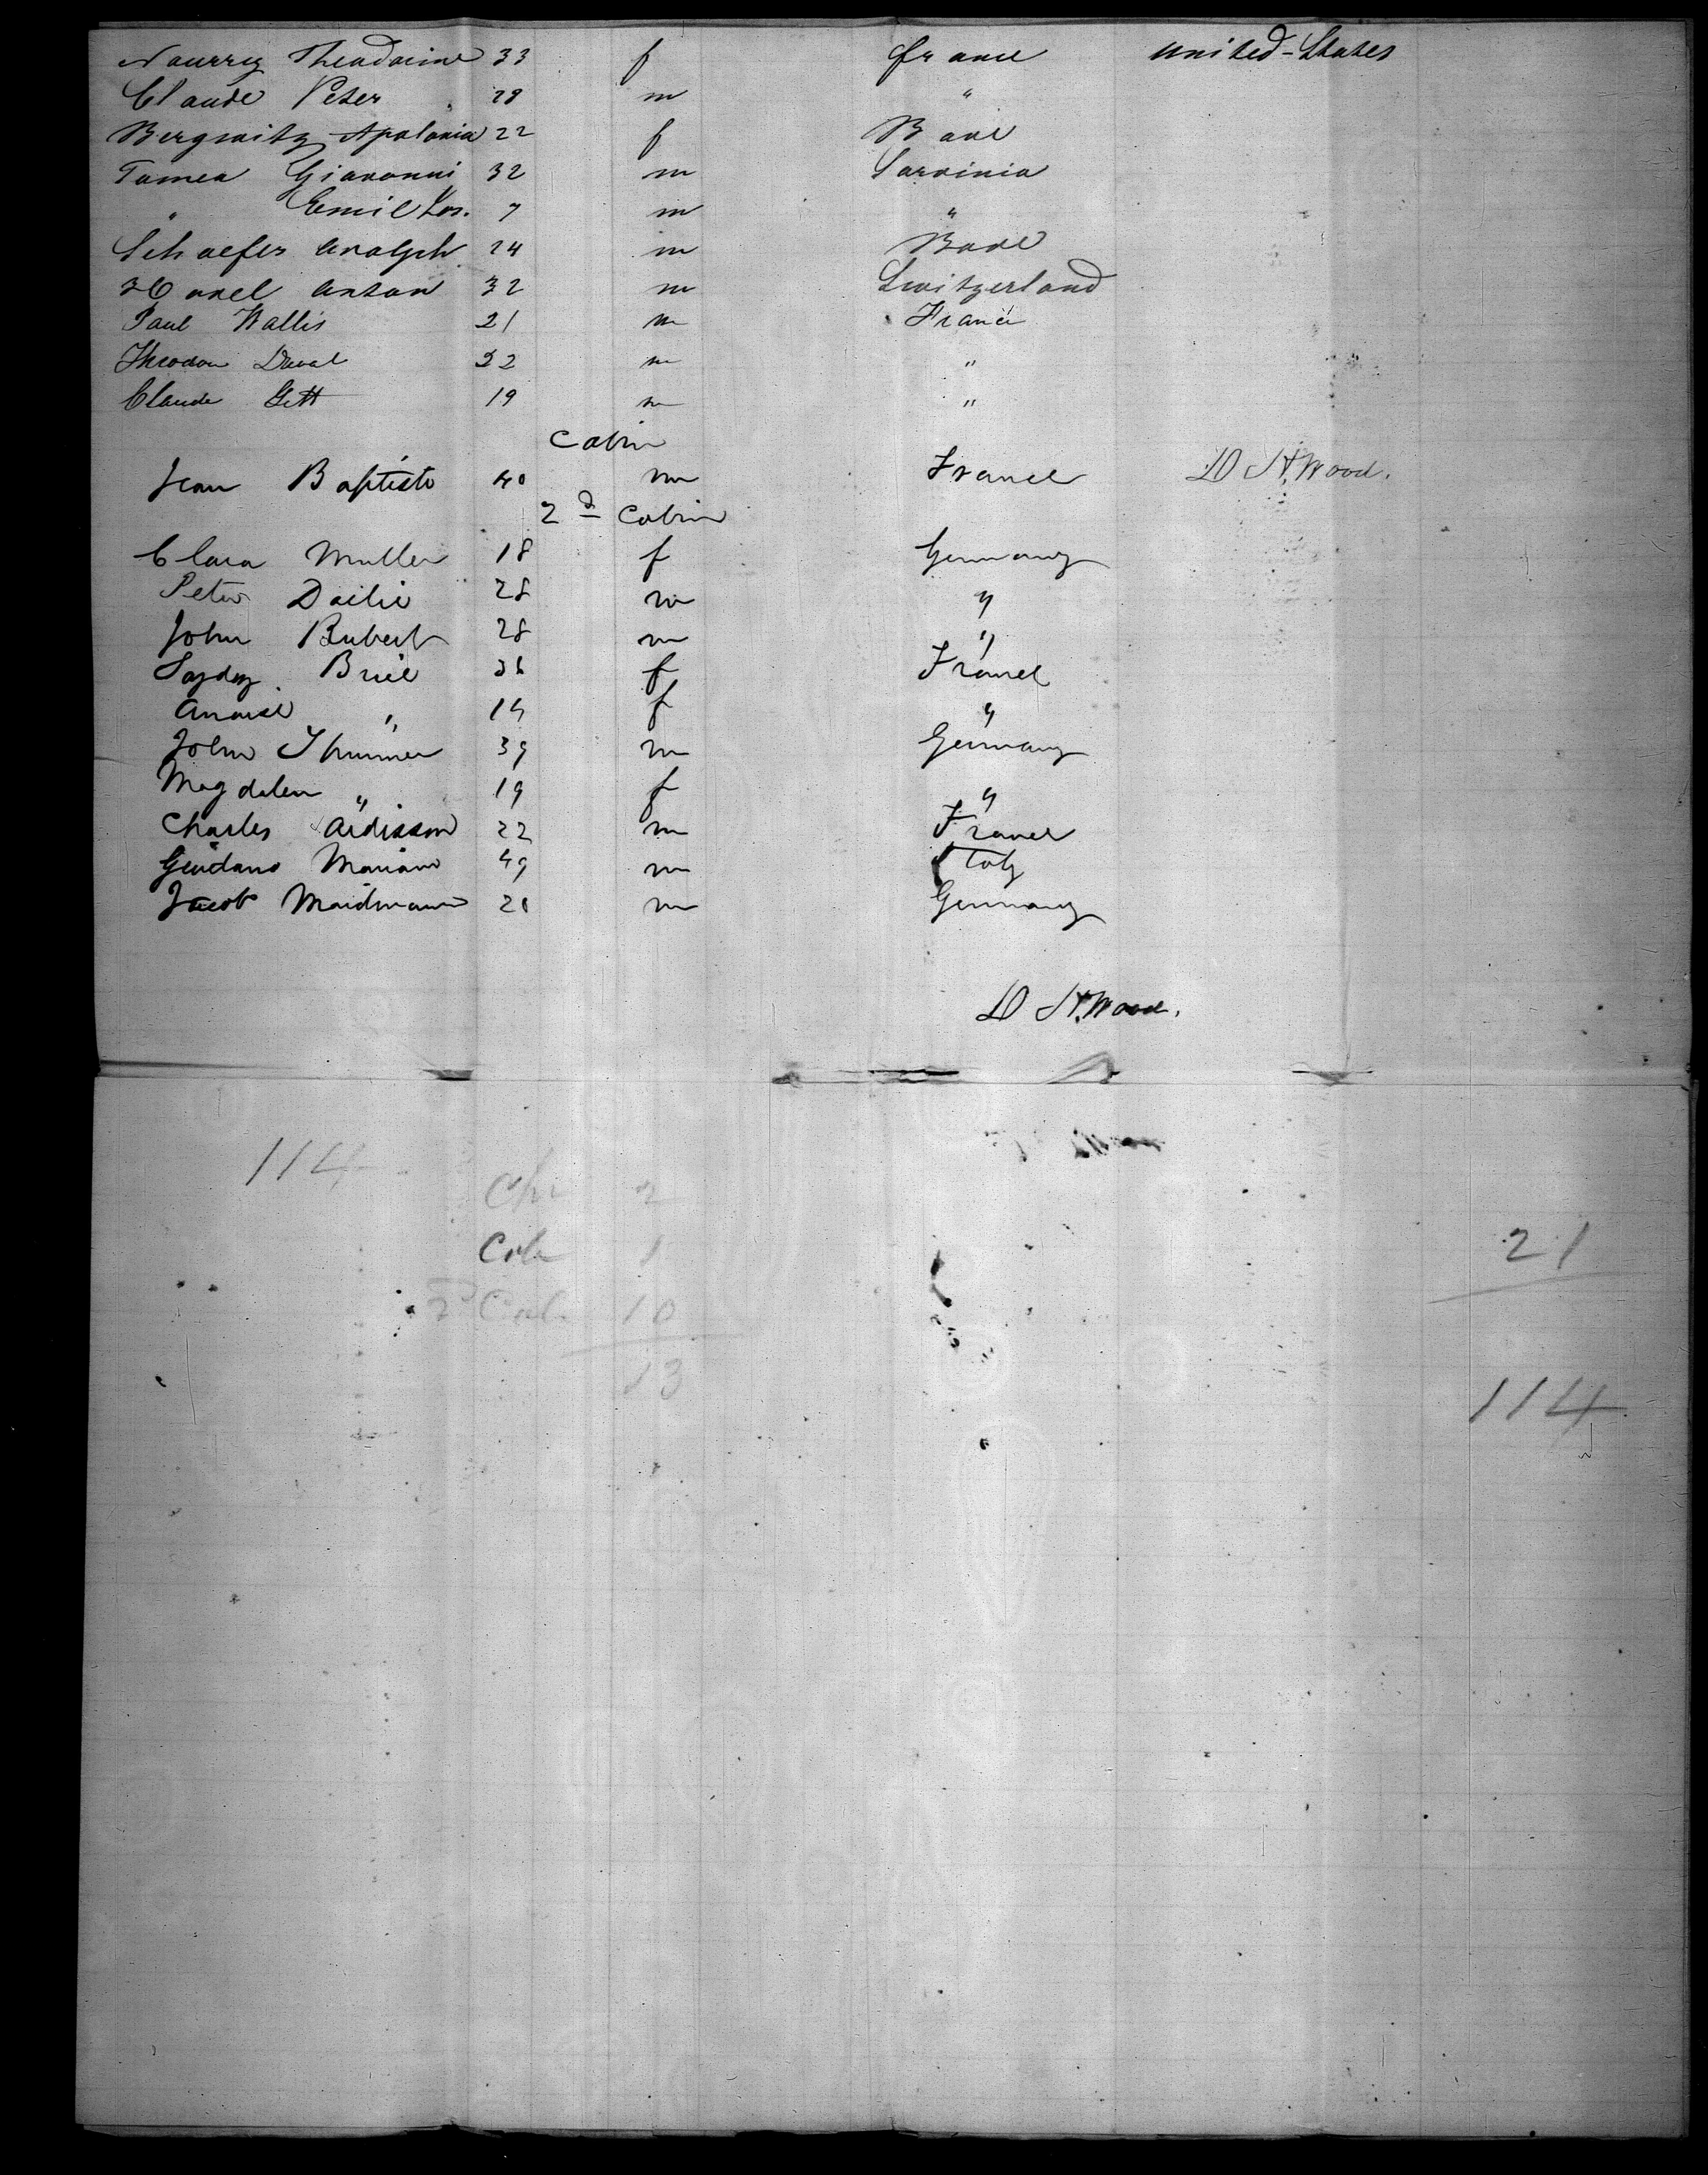 Nourry Theodorine 33 f france united-States
Claude Peter 28 m "
Bergwitz Apolonia 22 f Bade
Tomea Giovanni 32 m Sardinia
" Emil Jos. 7 m "
Schaefer Adolph 24 m Bade
Anton 32 m Switzerland
Paul Wallis 21 m France
Theodore Duval 22 m "
Claude Gett 19 m "
Cabin
Jean Baptiste 40 m France D H. Wood.
2d Cabin
Clara Muller 18 f Germany
Peter Dailie 28 m "
John Bubert 28 m "
Brie 36 f France
" 14 f "
John Thumer 39 m Germany
Magdalen " 19 f "
Charles Ardisson 22 m France
Giudano Mariano 49 m Italy
Jacob Maidmann 28 m Germany
D H. Wood.
114
Chi 2
Cab 1 21
2d Cab 10
13
114